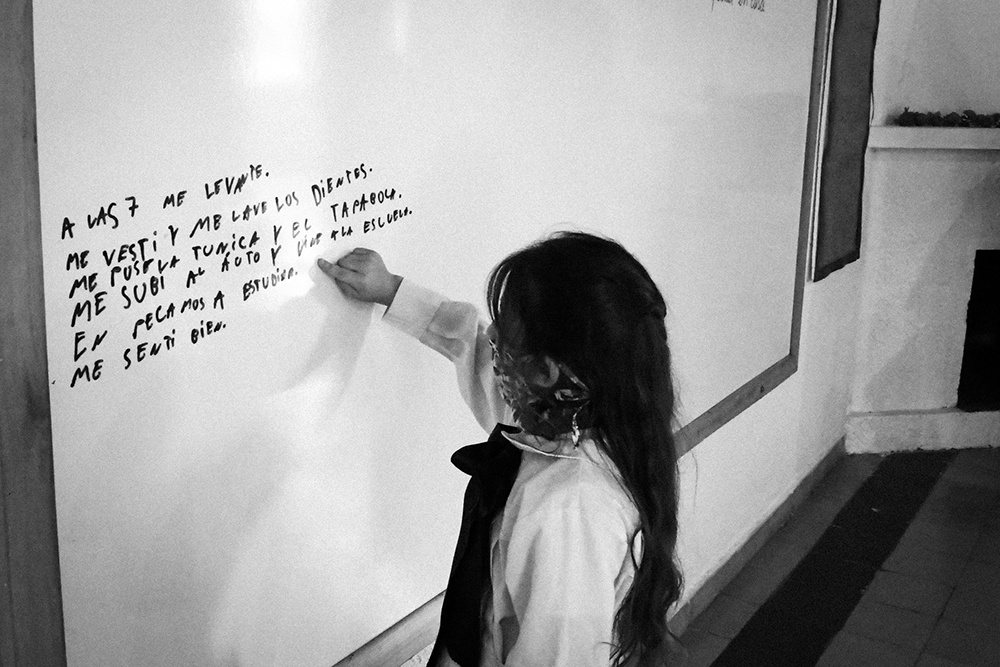 A LAS 7 ME LEVANTE.
ME VESTI Y ME LAVE LOS DIENTES.
ME PUSE LA TUNICA Y EL TAPABOCA.
ME SUBI AL AUTO Y VINE A LA ESCUELA.
EN PECAMOS A ESTUDIAR.
ME SENTI BIEN.